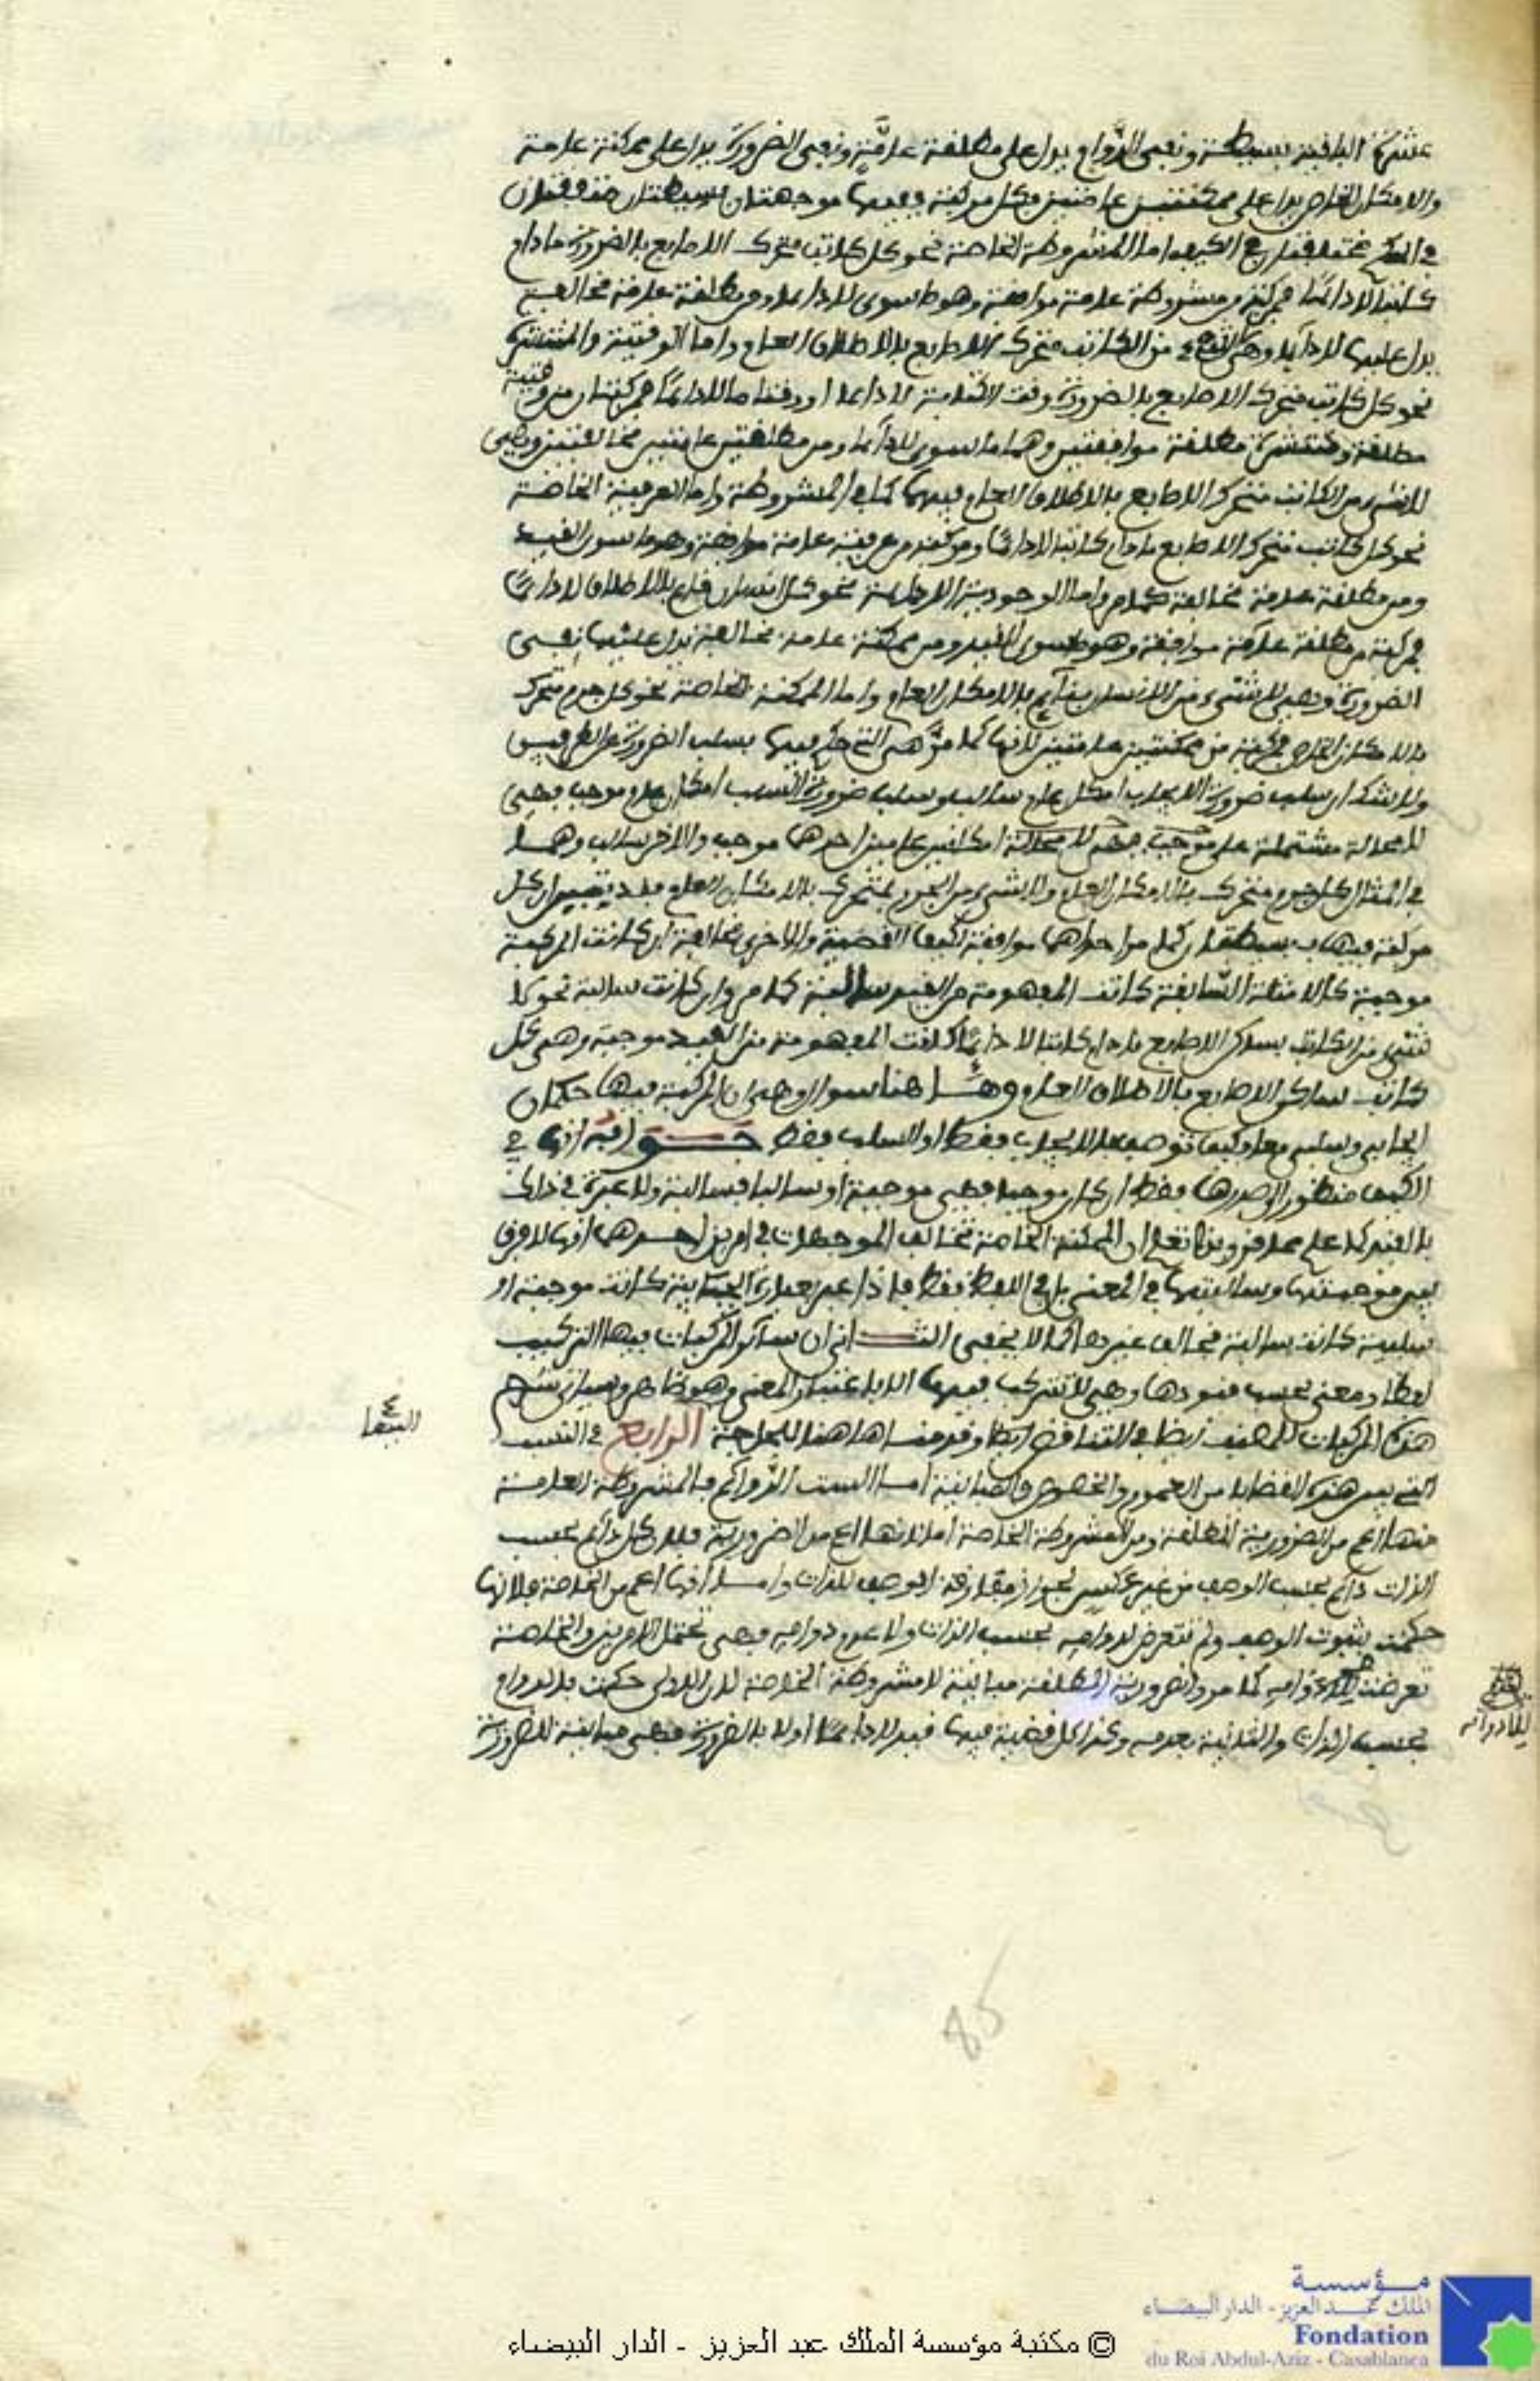 عشرة الباقية بسيطة ونفي الدوام يدل على مطلقة عامة ونفي الضرورة يدل على ممكنة عامة
والامكان الخاص يدل على ممكنتين عامتين وكل مركبة ففيها موجهتان بسيطتان متفقتان
في الكم مختلفتان في الكيف اما المشروطة الخاصة نحو كل كاتب متحرك الاصابع بالضرورة ما دام
كاتبا لا دائما فمركبة من مشروطة عامة موافقة وهو ما سوى لا دائما ومن مطلقة عامة مخالفة
يدل عليها لا دائما وهي لا شيء من الكاتب متحرك الاصابع بالاطلاق العام واما الوقتية والمنتشرة
نحو كل كاتب متحرك الاصابع بالضرورة وقت الكتابة لا دائما او وقتا ما لا دائما فمركبتان من وقتية
مطلقة ومنتشرة مطلقة موافقتين وهما ما سوى لا دائما ومن مطلقتين عامتين مخالفتين وهي
لا شيء من الكاتب متحرك الاصابع بالاطلاق العام فيهما كما في المشروطة واما العرفية الخاصة
نحو كل كاتب متحرك الاصابع ما دام كاتبا لا دائما ومركبة من عرفية عامة موافقة وهو ما سوى القيد
ومن مطلقة عامة مخالفة كما مر واما الوجودية اللادائمة نحو كل انسان قائم بالاطلاق لا دائما
فمركبة من مطلقة عامة موافقة وهو ما سوى القيد ومن ممكنة عامة مخالفة يدل عليها نفي
الضرورة وهي لا شيء من الانسان بقائم بالامكان العام واما الممكنة الخاصة نحو كل جرم متحرك
بالامكان الخاص فمركبة من ممكنتين عامتين لانها كما مر هي التي حكم فيها بسلب الضرورة عن الطرفين
ولا شك ان سلب ضرورة الايجاب امكان عام سالب وسلب ضرورة السلب امكان عام موجب فهي
لا محالة مشتملة على امكانين عامين احدهما موجب والاخر سالب وهما
في المثال كل جرم متحرك بالامكان العام ولا شيء من الجرم بمتحرك بالامكان العام ان كل
مركبة فيها بسيطتان كما مر احداهما موافقة لكيف القضية والاخرى مخالفة ان كانت المركبة
موجبة كالامثلة السابقة كانت المفهومة من القيد سالبة كما مر وان كانت سالبة نحو لا
شيء من الكاتب بساكن الاصابع ما دام كاتبا لا دائما كانت المفهومة من القيد موجبة وهي كل
كاتب ساكن الاصابع بالاطلاق العام وها هنا سؤال وهو ان المركبة فيها حكمان
ايجابي وسلبي معا فكيف توصف بالايجاب فقط او السلب فقط جوابه انها في
الكيف منظور لصدرها فقط ان كان موجبا فهي موجبة او سالبا فسالبة ولا عبرة في ذلك
بالقيد كما علم مما مر وبهذا تعلم ان الممكنة الخاصة تخالف الموجهات في امرين احدهما انها لا فرق
بين موجبتها وسالبتها في المعنى بل في اللفظ فقط فاذا عبر بعبارة ايجابية كانت موجبة او
سلبية كانت سالبة بخلاف غيرها كما لا يخفى الثاني ان سائر المركبات فيها التركيب
لفظا ومعنى بحسب قيودها وهي لا تتركب فيها الا باعتبار المعنى وهو ظاهر وسياتي شرح
هذه المركبات للمصنف ايضا في التناقض ايضا وقدمناها هنا للحاجة الرابع في النسب
التي بين هذه القضايا من العموم والخصوص والمباينة اما الست الدوائم فالمشروطة العامة
منها اعم من الضرورية المطلقة ومن المشروطة الخاصة اما انها اعم من الضرورية فلان كل دائم بحسب
الذات دائم بحسب الوصف من غير عكس لجواز مفارقة الوصف للذات واما انها اعم من الخاصة فلانها
حكمت بثبوت الوصف ولم تتعرض لدوامه بحسب الذات ولا عدم دوامه فهي تحتمل الامرين والخاصة
تعرضت لعدم دوامه كما مر والضرورية المطلقة مباينة للمشروطة الخاصة لان الاولى حكمت بالدوام
بحسب الذات والثانية بعدمه وكذا كل قضية فيها قيد لا دائما او لا بالضرورة فهي مباينة للضرورة
85
مؤسسة
الملك عبد العزيز - الدار البيضاء
Fondation
du Roi Abdul-Aziz - Casablanca
© مكتبة مؤسسة الملك عبد العزيز - الدار البيضاء